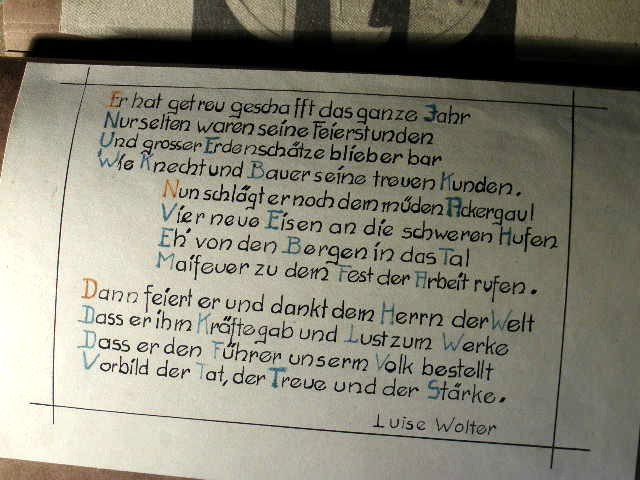 Er hat getreu geschafft das ganze Jahr
Nur selten waren seine Feierstunden
Und grosser Erdenschätze blieb er bar
Wie Knecht und Bauer seine treuen Kunden.
Nun schlägt er noch dem müden Ackergaul
Vier neue Eisen an die schweren Hufen
Eh' von den Bergen in das Tal
Maifeuer zu dem Fest der Arbeit rufen.
Dann feiert er und dankt dem Herrn der Welt
Dass er ihm Kräfte gab und Lust zum Werke
Dass er den Führer unserm Volk bestellt
Vorbild der Tat, der Treue und der Stärke.
Luise Wolter